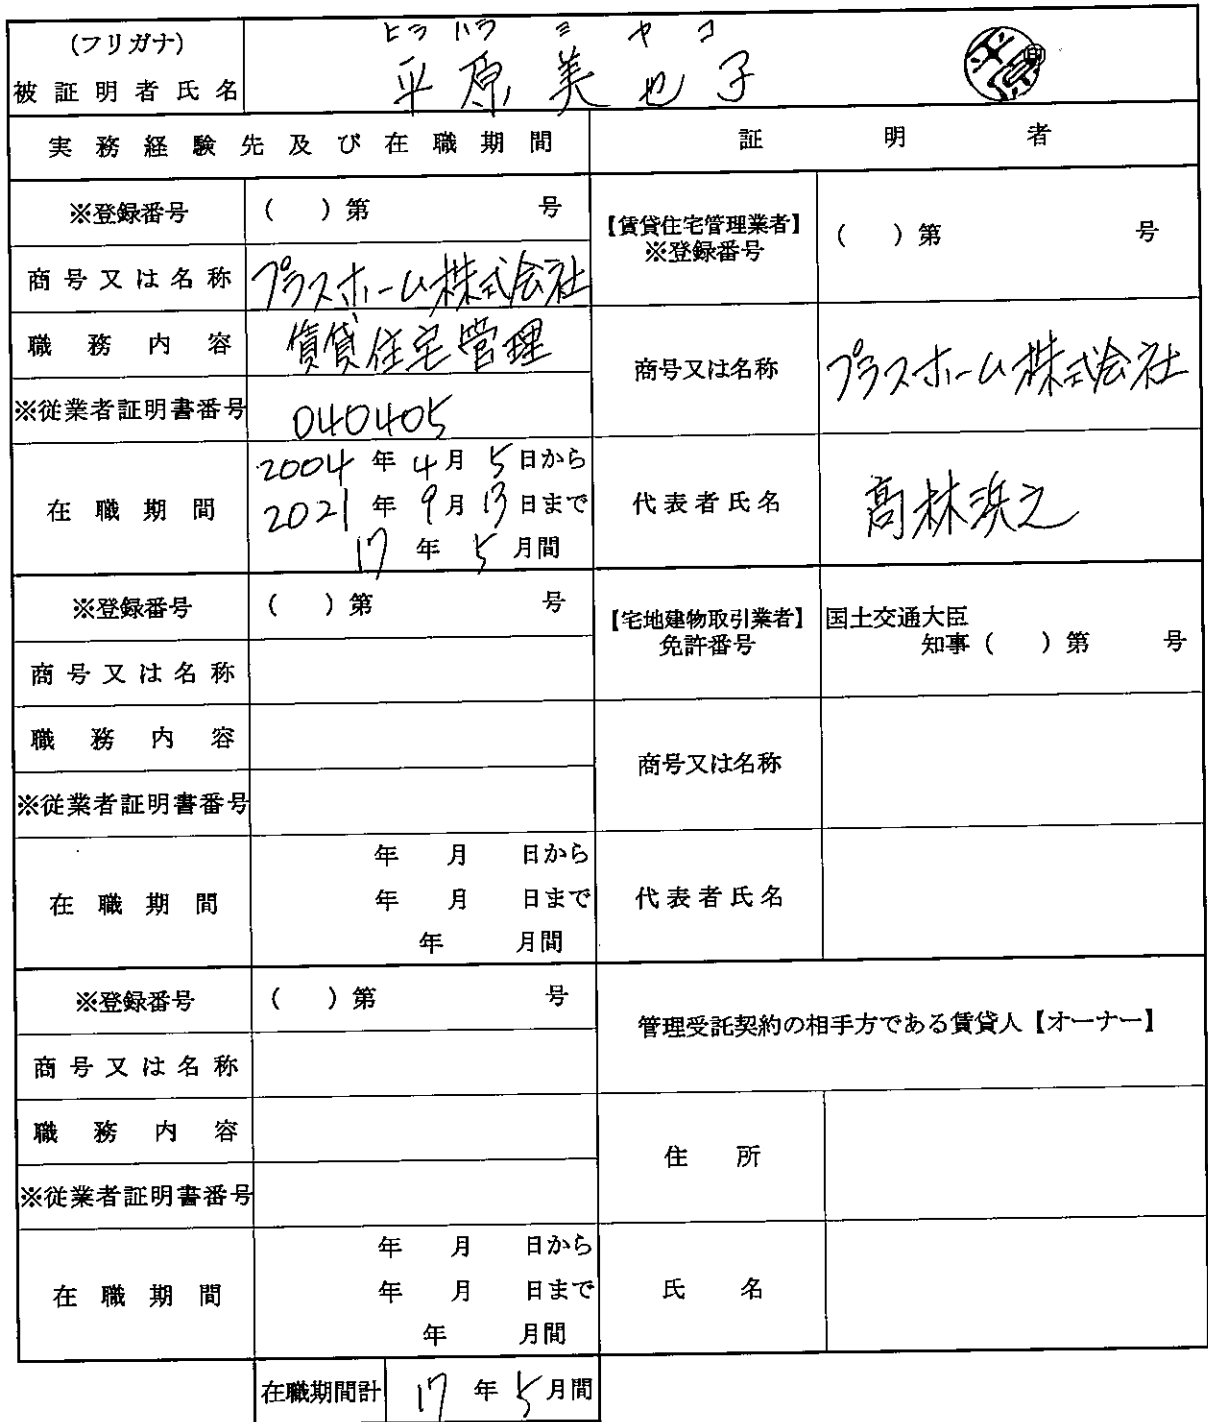 (フリガナ) ヒラ ハラ ミ ヤ コ
被証明者氏名 平原美也子 平原 ㊞
実務経験先及び在職期間 証明者
※登録番号 ( )第 号 【賃貸住宅管理業者】 ※登録番号 ( )第 号
商号又は名称 プラスホーム株式会社
職務内容 賃貸住宅管理 商号又は名称 プラスホーム株式会社
※従業者証明書番号 040405
在職期間 2004年4月5日から
2021年9月13日まで
17年5月間
代表者氏名 髙林浜之
※登録番号 ( )第 号 【宅地建物取引業者】 免許番号 国土交通大臣
知事( )第 号
商号又は名称
職務内容 商号又は名称
※従業者証明書番号
在職期間 年 月 日から
年 月 日まで
年 月間
代表者氏名
※登録番号 ( )第 号 管理受託契約の相手方である賃貸人【オーナー】
商号又は名称
職務内容 住所
※従業者証明書番号
在職期間 年 月 日から
年 月 日まで
年 月間
氏名
在職期間計 17年5月間